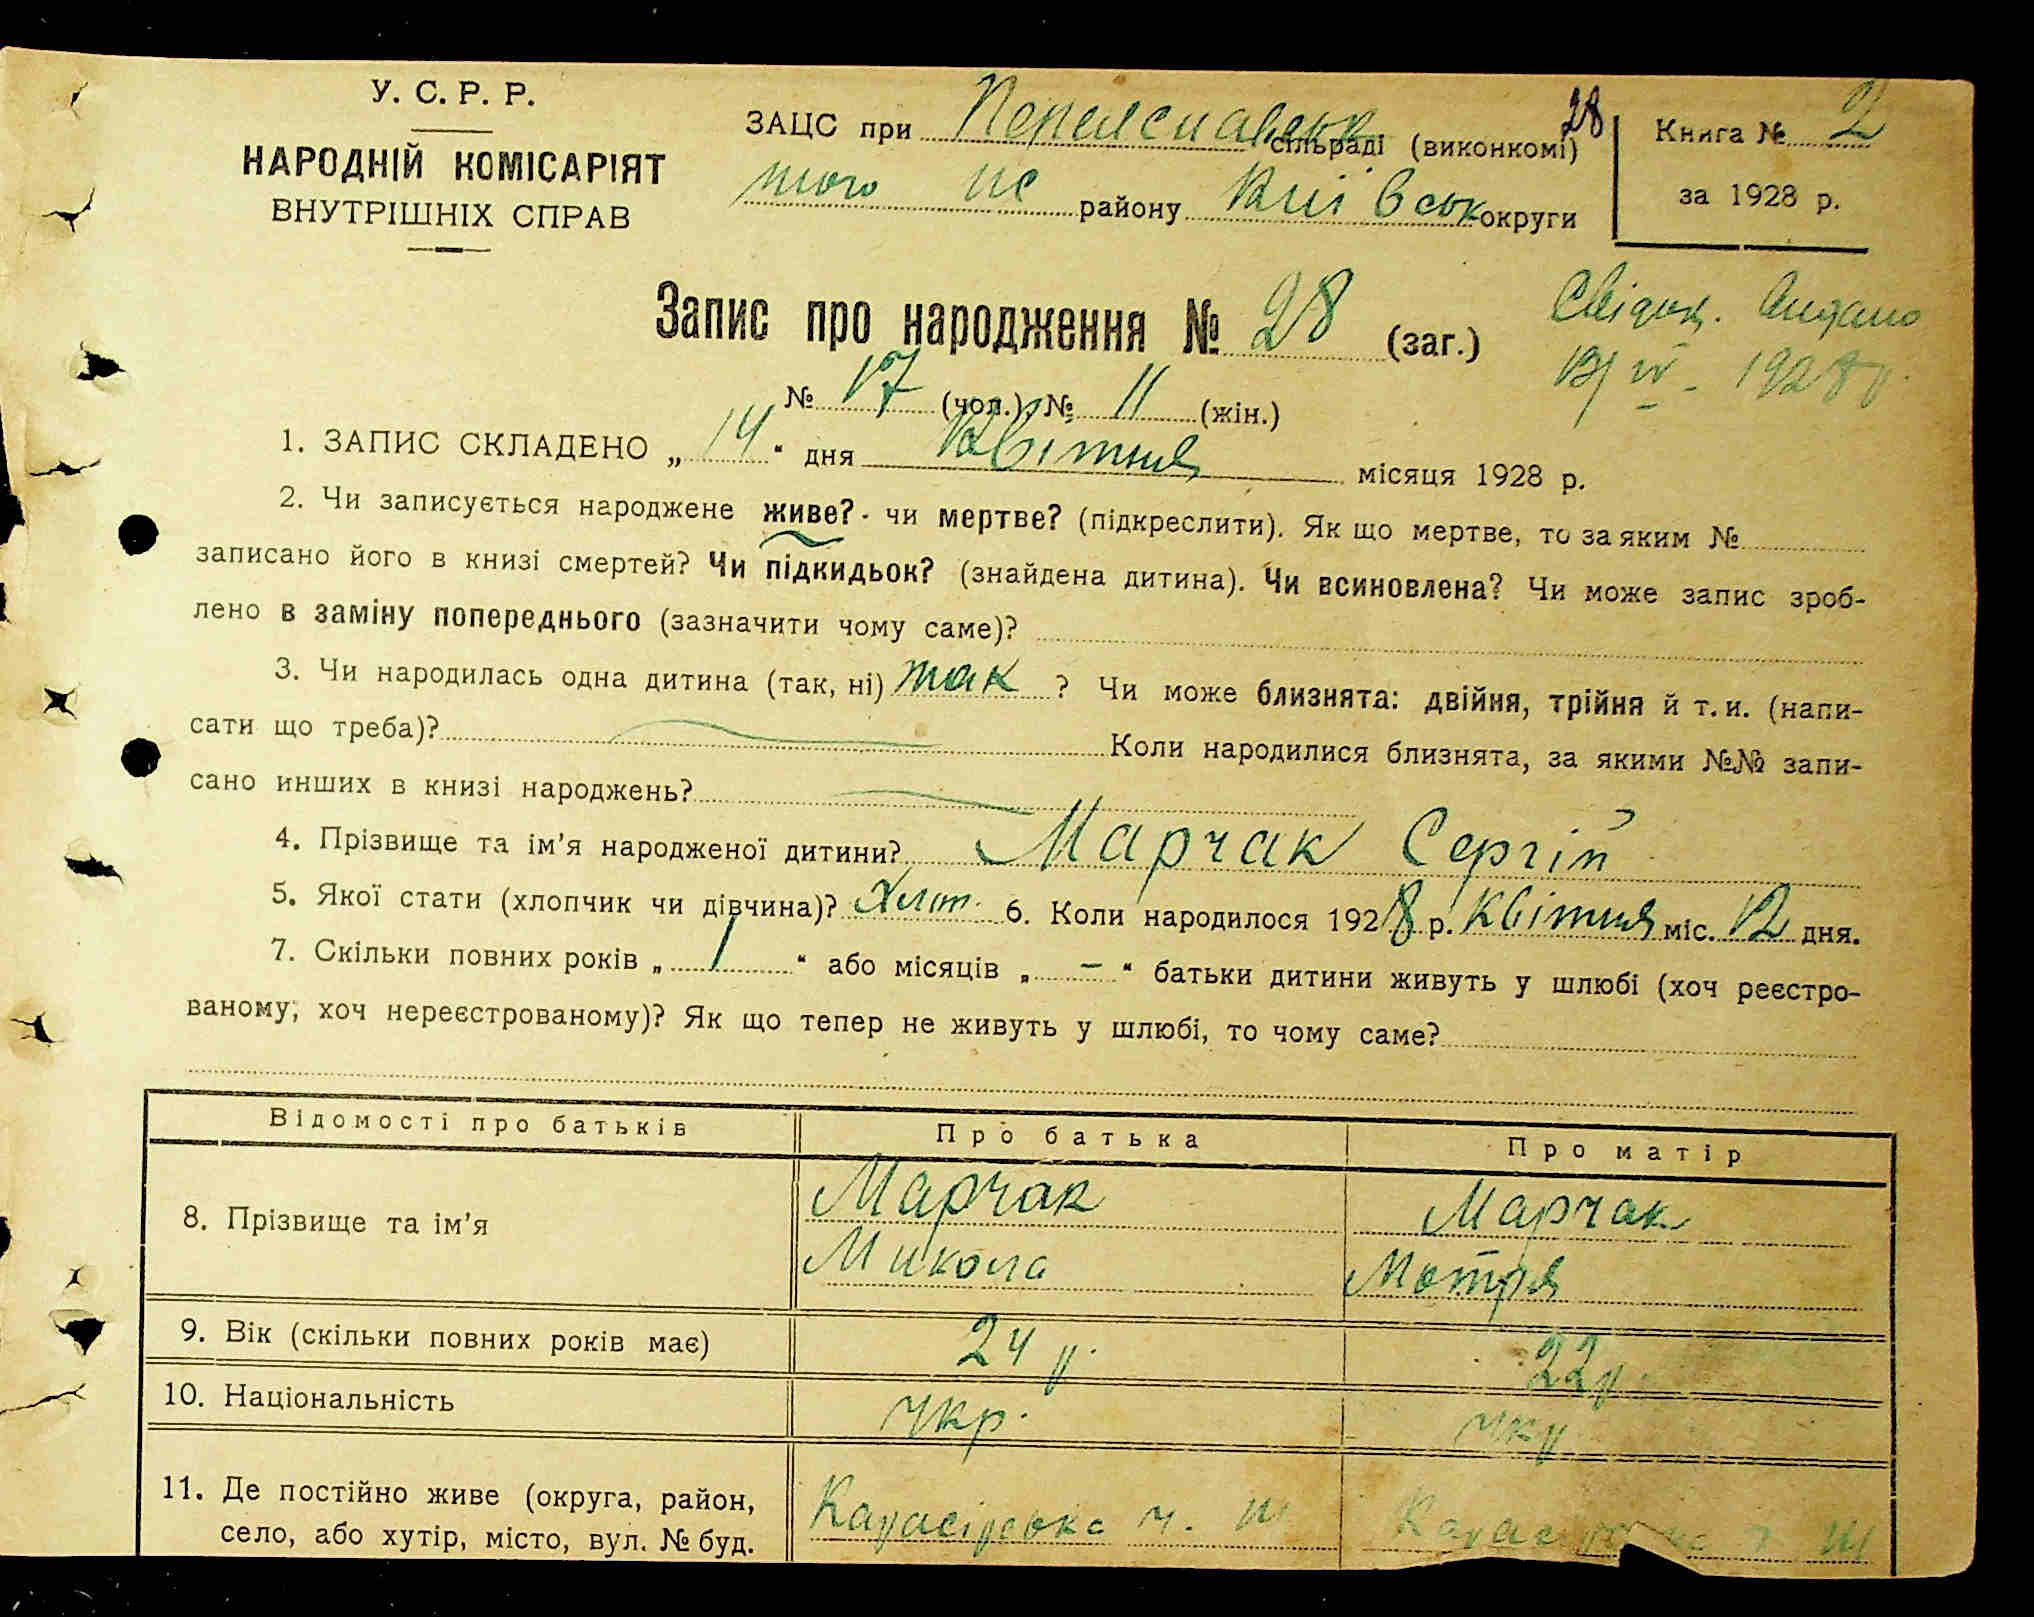 У. С. Р. Р.
НАРОДНІЙ КОМІСАРІЯТ
ВНУТРІШНІХ СПРАВ
ЗАЦС при Переяславськ сільраді (виконкомі) 28
того ж району Київськ округи
Книга № 2
за 1928 р.
Запис про народження № 28 (заг.)
Свідоц. видано
1928 р.
№ 17 (чол.) № 11 (жін.)
1. ЗАПИС СКЛАДЕНО „ 14 “ дня Квітня місяця 1928 р.
2. Чи записується народжене живе? чи мертве? (підкреслити). Як що мертве, то за яким №
записано його в книзі смертей? Чи підкидьок? (знайдена дитина). Чи всиновлена? Чи може запис зроб-
лено в заміну попереднього (зазначити чому саме)?
3. Чи народилась одна дитина (так, ні) так ? Чи може близнята: двійня, трійня й т. и. (напи-
сати що треба)? Коли народилися близнята, за якими №№ запи-
сано инших в книзі народжень?
4. Прізвище та ім’я народженої дитини? Марчак Сергій
5. Якої стати (хлопчик чи дівчина)? Хлоп. 6. Коли народилося 1928 р. Квітня міс. 12 дня.
7. Скільки повних років „ 1 “ або місяців „ – “ батьки дитини живуть у шлюбі (хоч реєстро-
ваному, хоч нереєстрованому)? Як що тепер не живуть у шлюбі, то чому саме?
Відомості про батьків Про батька Про матір
8. Прізвище та ім’я Марчак Марчак
Микола Мотря
9. Вік (скільки повних років має) 24 р. 22 р.
10. Національність Укр. Укр
11. Де постійно живе (округа, район,
село, або хутір, місто, вул. № буд.